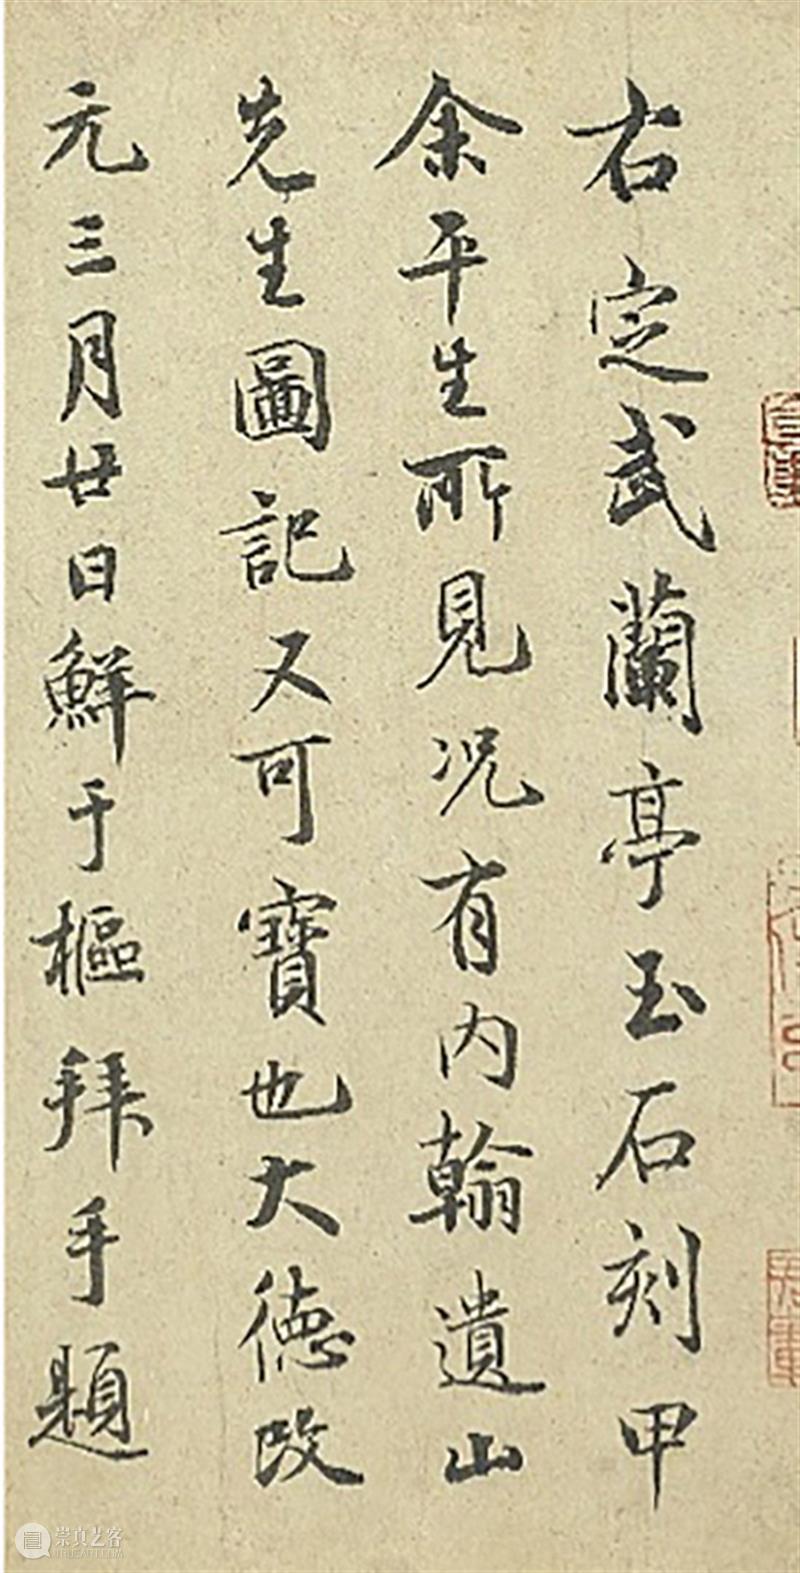 右定武蘭亭玉石刻甲
余平生所見况有内翰遺山
先生圖記又可寶也大德改
元三月廿日鮮于樞拜手題
崇真艺客